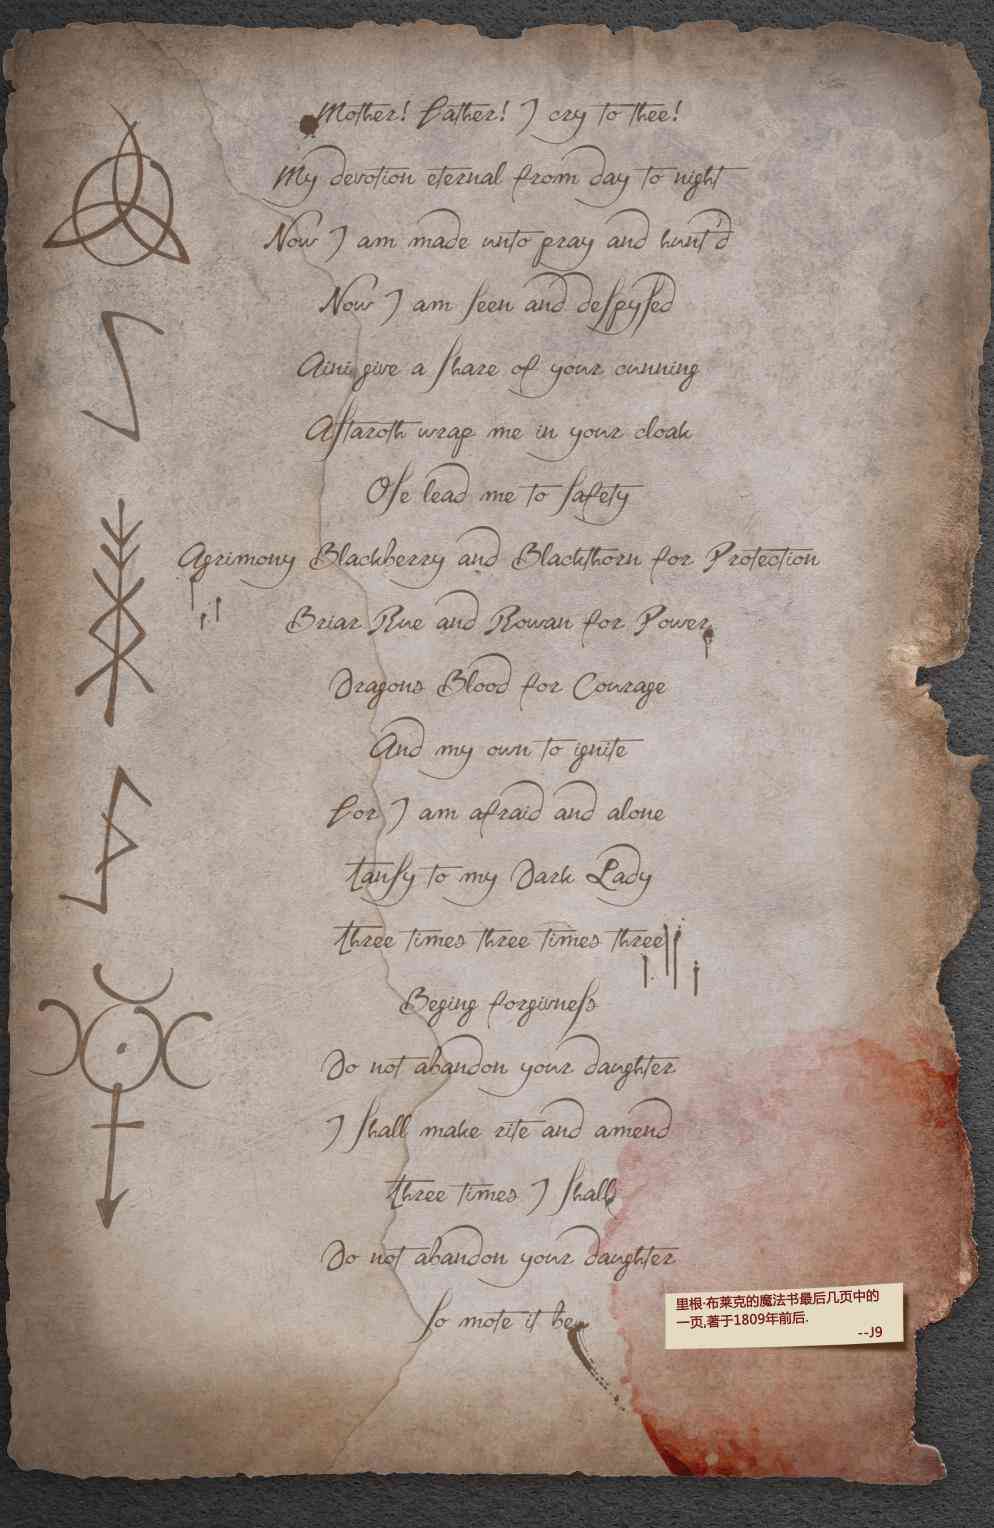 Mother! Father! I cry to thee!
My devotion eternal from day to night
Now I am made unto pray and hunt'd
Now I am seen and despysed
Aini give a share of your cunning
Astaroth wrap me in your cloak
Ose lead me to safety
Agrimony Blackberry and Blackthorn for Protection
Briar Rue and Rowan for Power
Dragons Blood for Courage
And my own to ignite
For I am afraid and alone
Tansy to my Dark Lady
Three times three times three
Beging forgivness
Do not abandon your daughter
I shall make rite and amend
Three times I shall
Do not abandon your daughter
So mote it be
里根·布莱克的魔法书最后几页中的
一页,著于1809年前后.
--J9